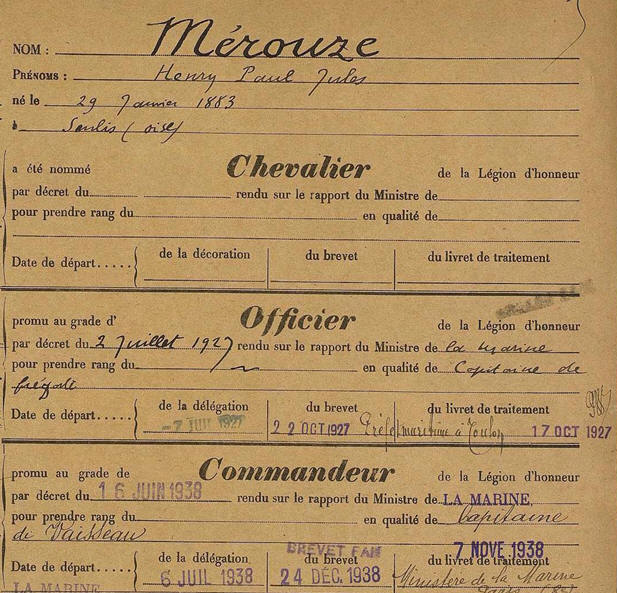 NOM : Mérouze
PRÉNOMS : Henry Paul Jules
né le 29 Janvier 1883
à Senlis (oise)
a été nommé Chevalier de la Légion d'honneur
par décret du rendu sur le rapport du Ministre de
pour prendre rang du en qualité de
Date de départ..... de la décoration du brevet du livret de traitement
promu au grade d' Officier de la Légion d'honneur
par décret du 2 Juillet 1927 rendu sur le rapport du Ministre de la Marine
pour prendre rang du en qualité de Capitaine de
frégate
Date de départ..... de la délégation du brevet du livret de traitement
-7 JUIL 1927 22 OCT 1927 Préfet maritime à Toulon 17 OCT 1927
promu au grade de Commandeur de la Légion d'honneur
par décret du 16 JUIN 1938 rendu sur le rapport du Ministre de LA MARINE,
pour prendre rang du en qualité de Capitaine
de Vaisseau
BREVET 7 NOVE 1938
Date de départ..... de la délégation du brevet du livret de traitement
6 JUIL 1938 24 DÉC. 1938 Ministère de la Marine
LA MARINE Paris